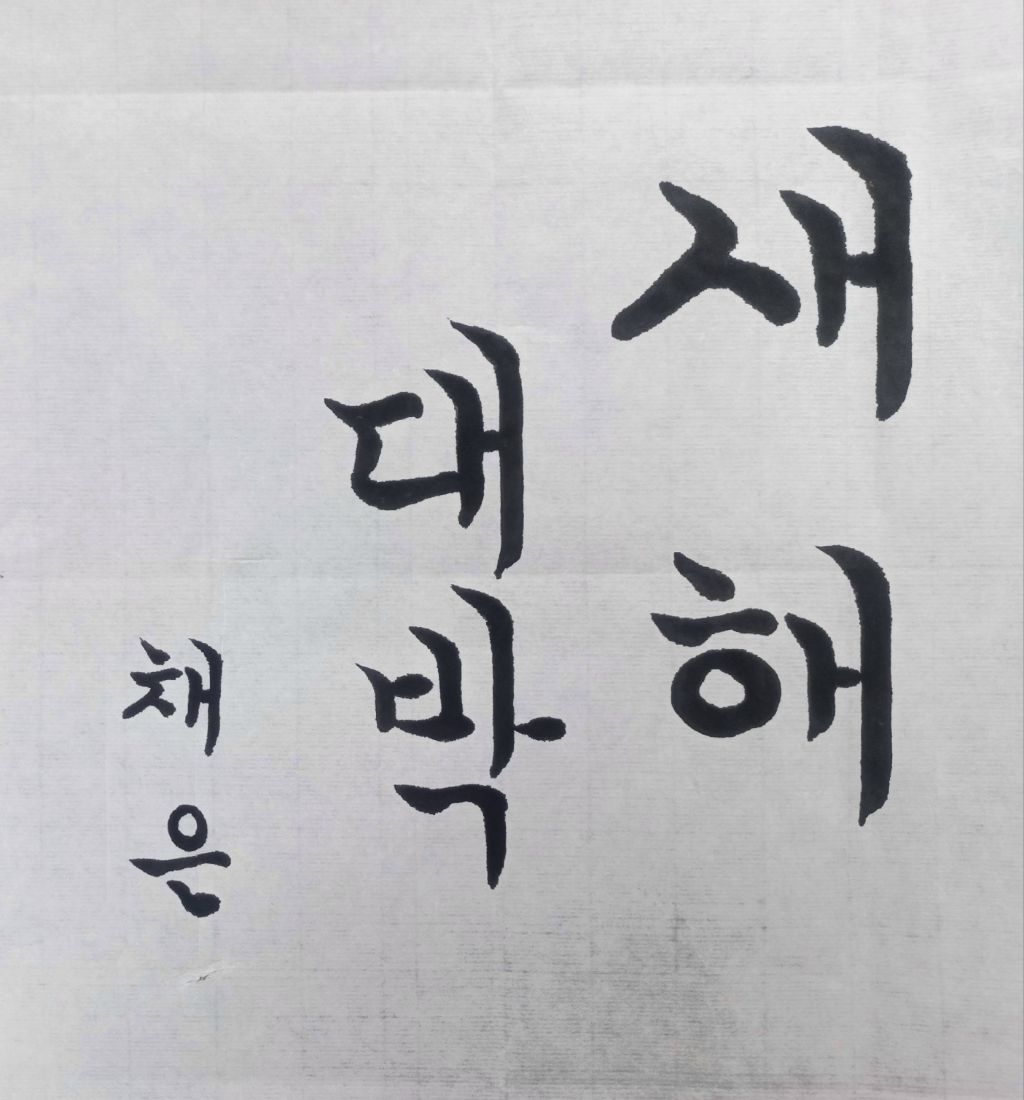 새해
대박
채은